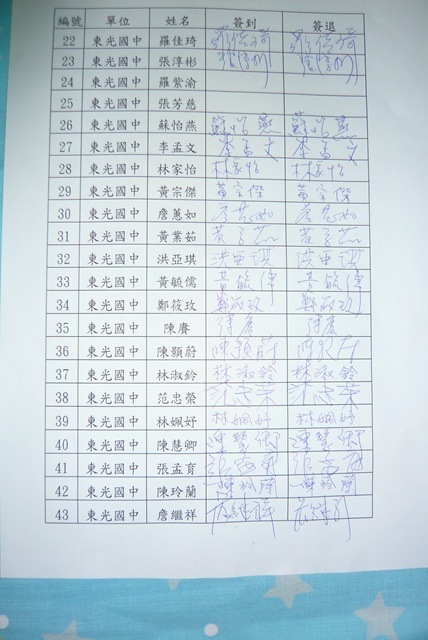 編號 單位 姓名 簽到 簽退
22 東光國中 羅佳琦 羅佳琦 羅佳琦
23 東光國中 張淳彬
24 東光國中 羅紫渝
25 東光國中 張芳慈
26 東光國中 蘇怡燕 蘇怡燕 蘇怡燕
27 東光國中 李孟文 李孟文 李孟文
28 東光國中 林家怡 林家怡 林家怡
29 東光國中 黃宗傑 黃宗傑 黃宗傑
30 東光國中 詹蕙如
31 東光國中 黃業茹
32 東光國中 洪亞琪 洪亞琪 洪亞琪
33 東光國中 黃毓儒
34 東光國中 鄭筱玫 鄭筱玫 鄭筱玫
35 東光國中 陳賡
36 東光國中 陳顥蔚
37 東光國中 林淑鈴 林淑鈴 林淑鈴
38 東光國中 范忠榮 范忠榮 范忠榮
39 東光國中 林姵妤 林姵妤 林姵妤
40 東光國中 陳慧卿 陳慧卿 陳慧卿
41 東光國中 張孟育
42 東光國中 陳玲蘭 陳玲蘭 陳玲蘭
43 東光國中 詹繼祥